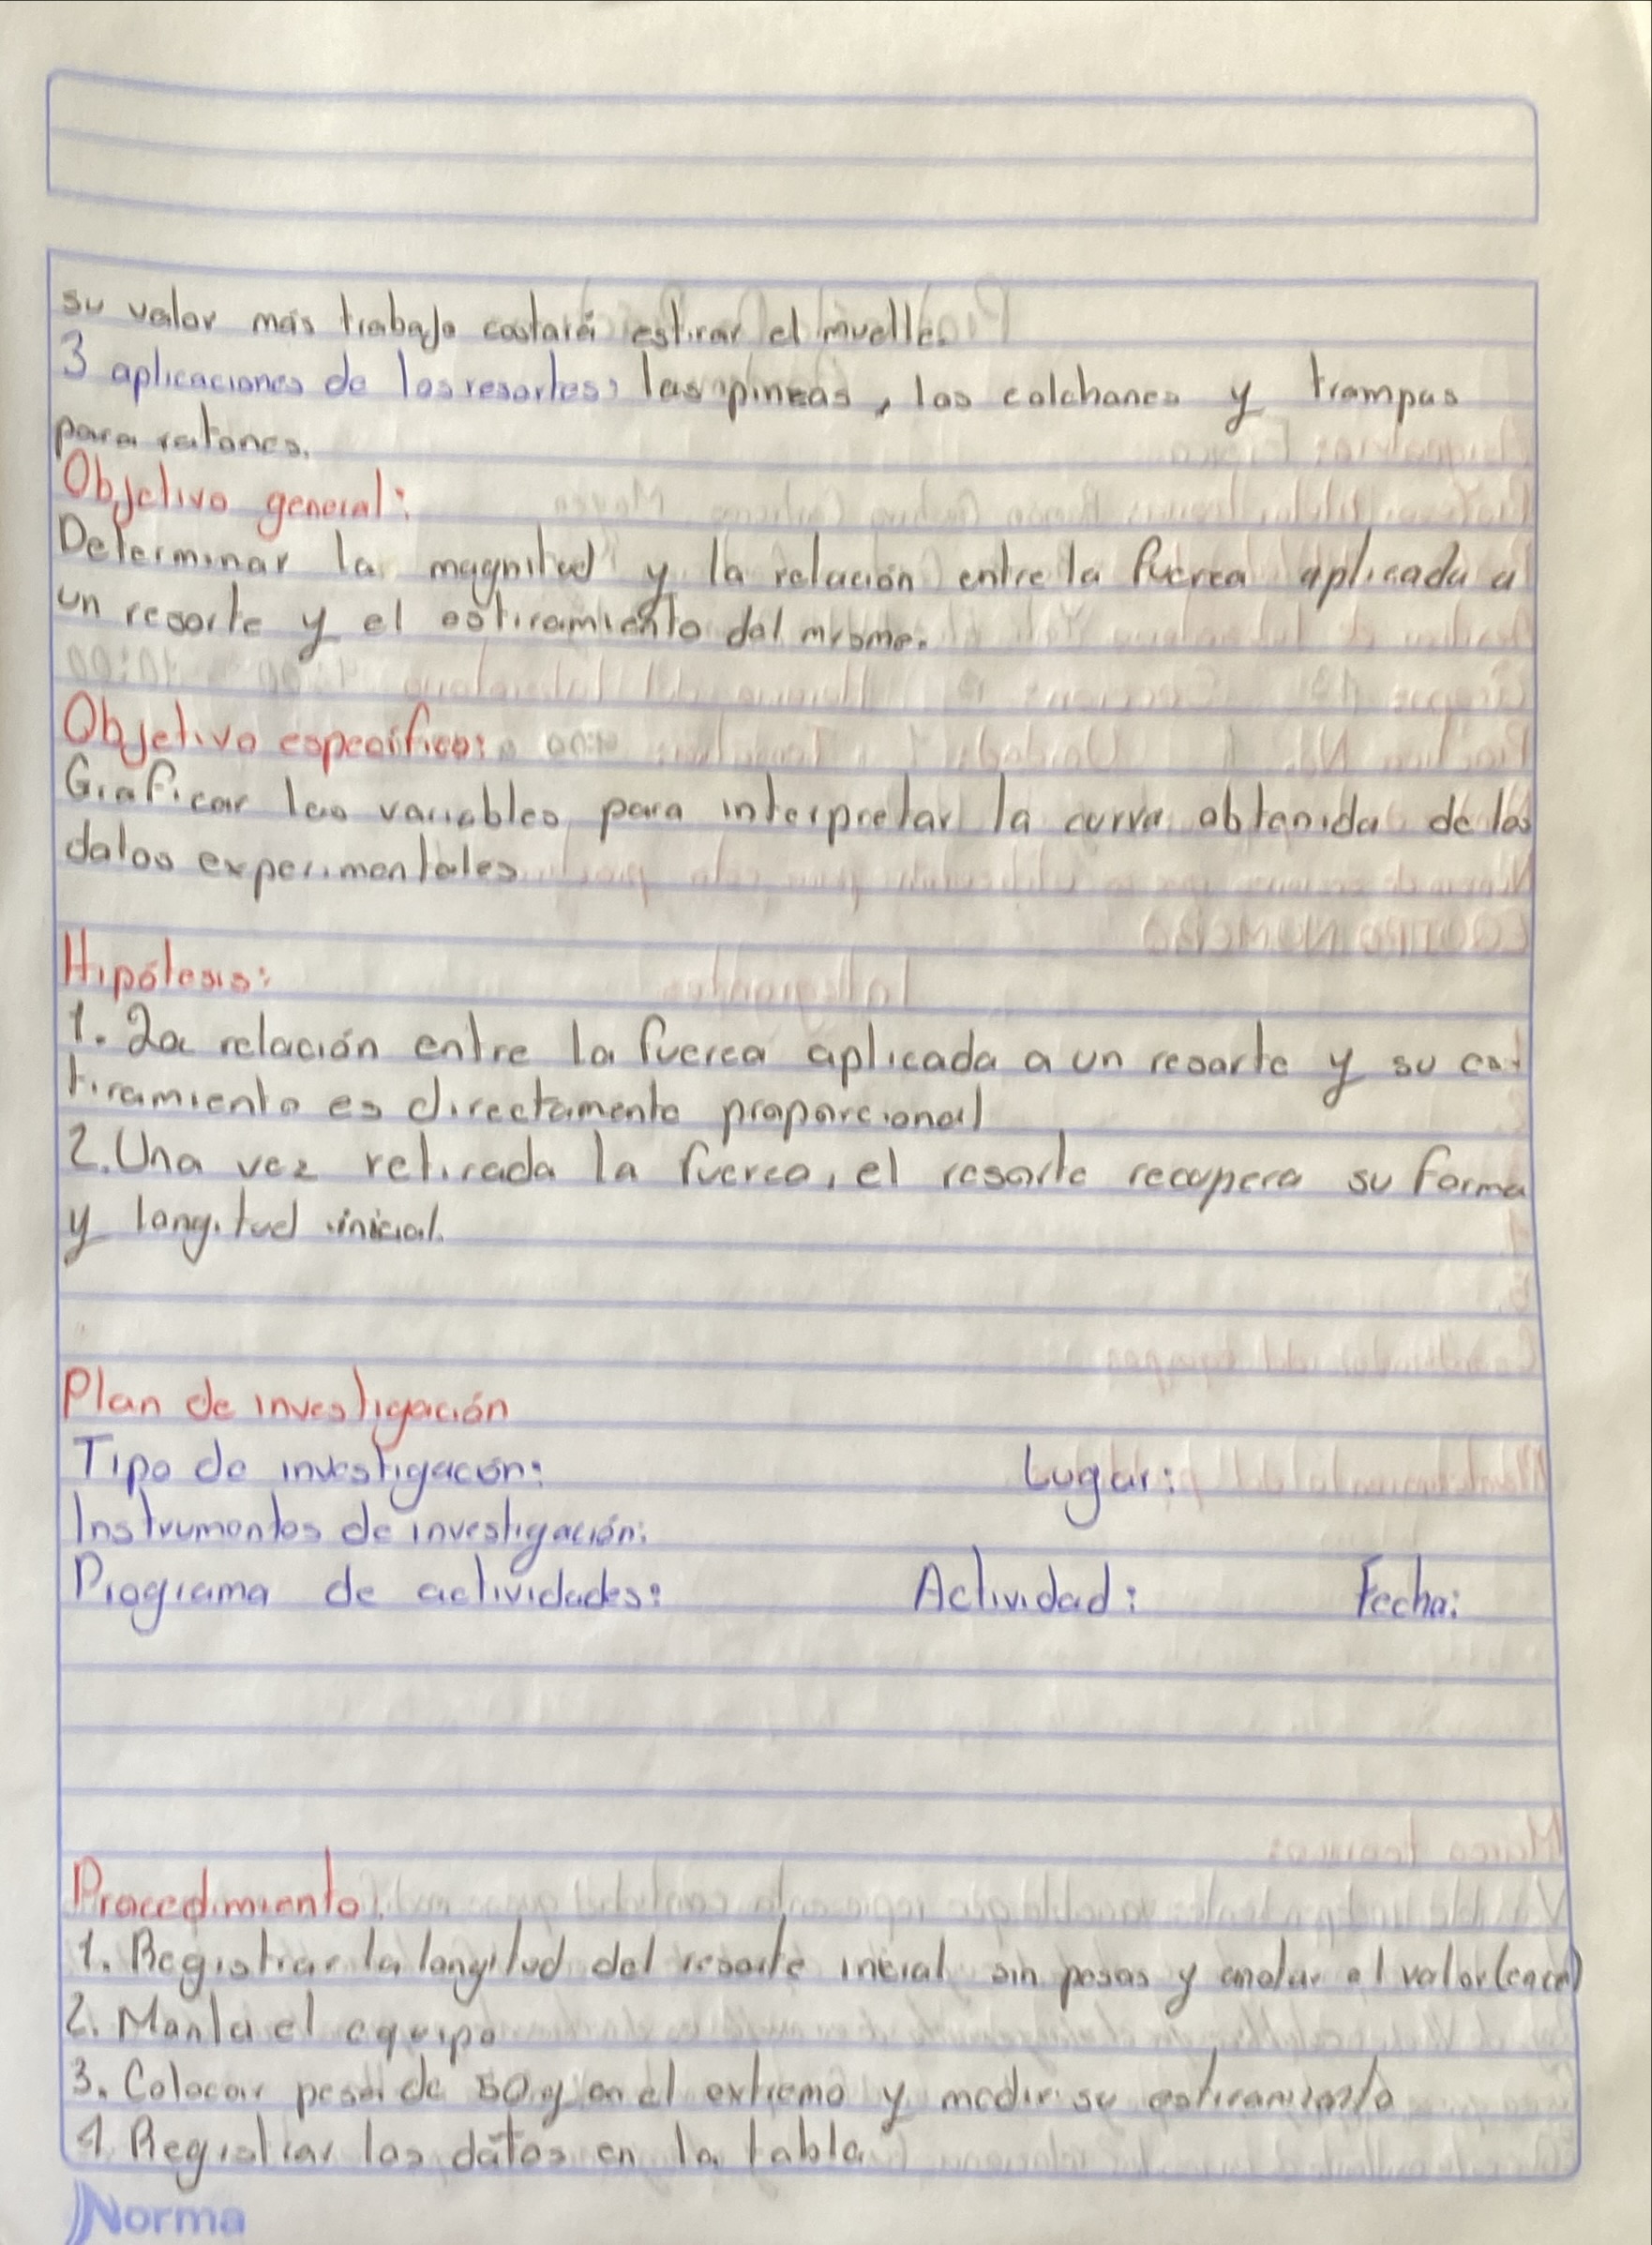 su valor más trabajo costará estirar el muelle.
3 aplicaciones de los resortes: las pinzas, los colchones y trampas
para ratones.
Objetivo general:
Determinar la magnitud y la relación entre la fuerza aplicada a
un resorte y el estiramiento del mismo.
Objetivo específico:
Graficar las variables para interpretar la curva obtenida de los
datos experimentales
Hipótesis:
1. La relación entre la fuerza aplicada a un resorte y su es-
tiramiento es directamente proporcional
2. Una vez retirada la fuerza, el resorte recupera su forma
y longitud inicial.
Plan de investigación
Tipo de investigación: Lugar:
Instrumentos de investigación:
Programa de actividades: Actividad: Fecha:
Procedimiento
1. Registrar la longitud del resorte inicial sin pesas y anotar el valor
2. Monta el equipo
3. Colocar pesa de 50g en el extremo y medir su estiramiento
4. Registrar los datos en la tabla
Norma